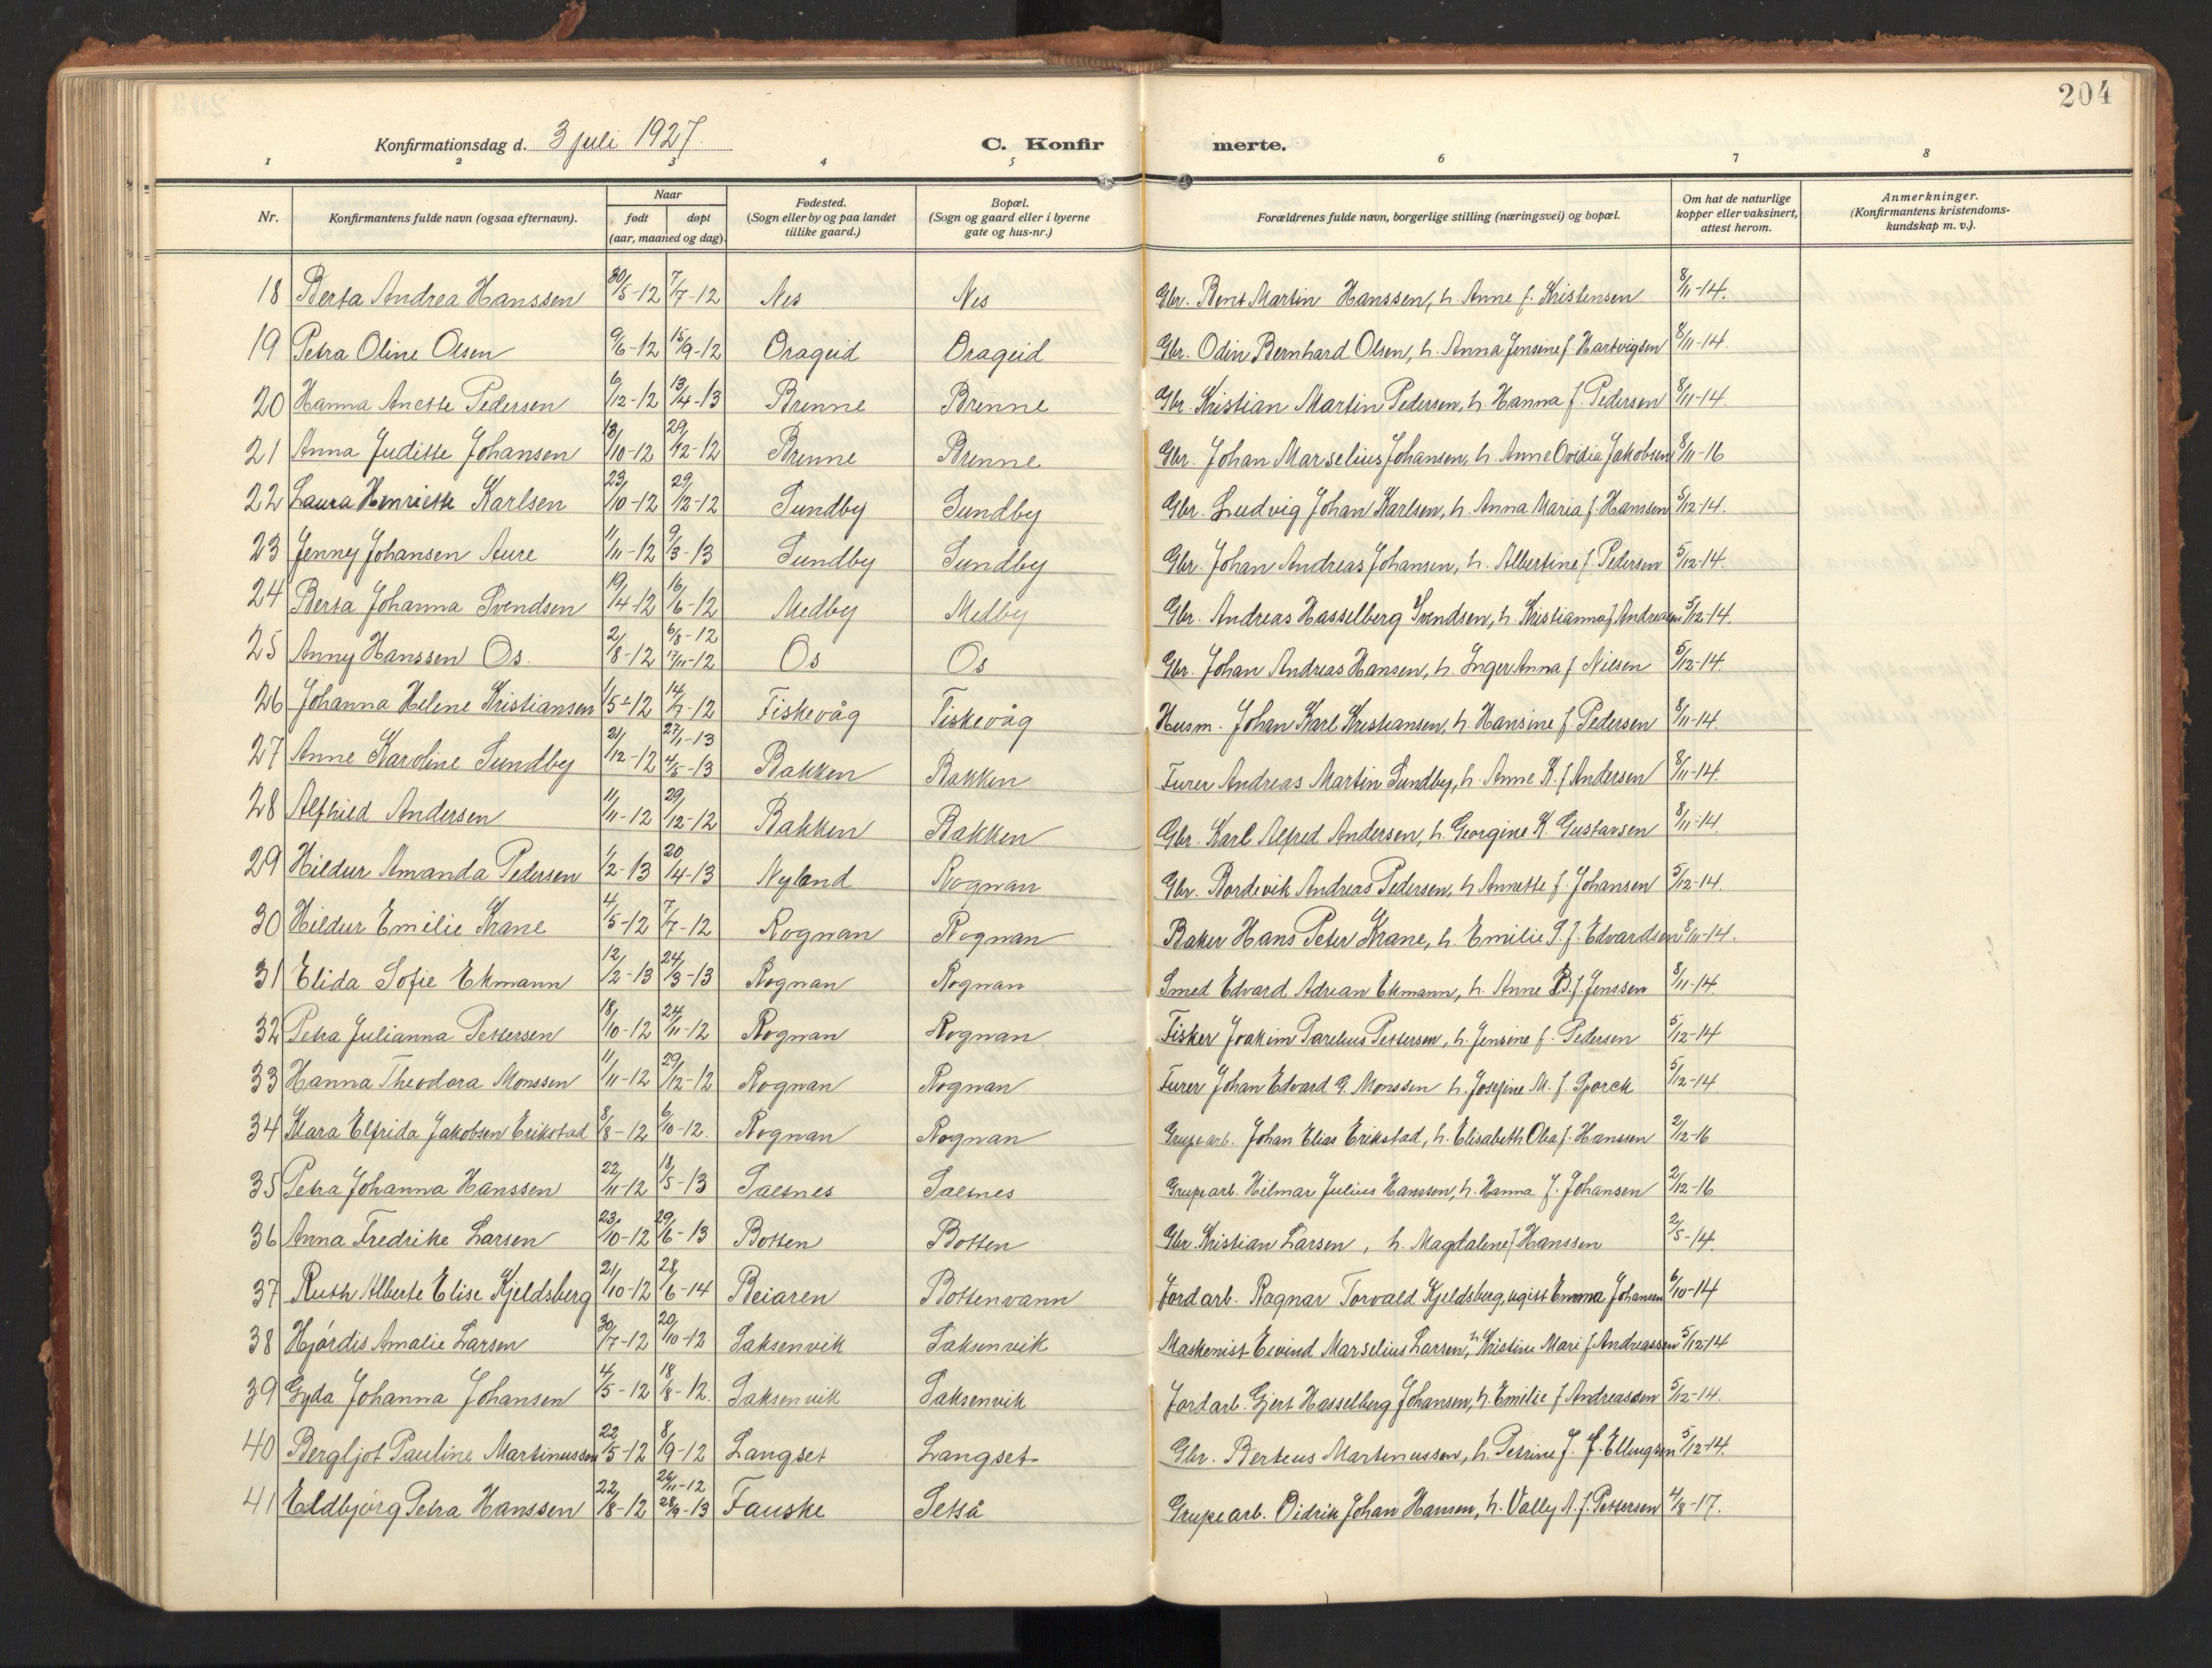 204
Konfirmationsdag d. 3 juli 1927. C. Konfirmerte.
1 2 3 4 5 6 7 8
Nr. Konfirmantens fulde navn (ogsaa efternavn). Naar født døpt (aar, maaned og dag). Fødested. (Sogn eller by og paa landet tillike gaard.) Bopæl. (Sogn og gaard eller i byerne gate og hus-nr.) Forældrenes fulde navn, borgerlige stilling (næringsvei) og bopæl. Om hat de naturlige kopper eller vaksinert, attest herom. Anmerkninger. (Konfirmantens kristendoms-kundskap m. v.).
18 Berta Andrea Hanssen 30/5-12 7/7-12 Nes Nes Gbr. Bent Martin Hanssen, h. Anne f. Kristensen 8/11-14.
19 Petra Oline Olsen 9/6-12 15/9-12 Drageid Drageid Gbr. Odin Bernhard Olsen, h. Anna Jensine f. Hartvigsen 8/11-14.
20 Hanna Anette Pedersen 6/12-12 13/4-13 Brenne Brenne Gbr. Kristian Martin Pedersen, h. Hanna f. Pedersen 8/11-14.
21 Anna Juditte Johansen 13/10-12 29/12-12 Brenne Brenne Gbr. Johan Marselius Johansen, h. Anne Ovidia Jakobsen 8/11-16
22 Laura Henriette Karlsen 23/10-12 29/12-12 Sundby Sundby Gbr. Ludvig Johan Karlsen, h. Anna Maria f. Hanssen 5/12-14.
23 Jenny Johansen Aure 11/11-12 9/3-13 Sundby Sundby Gbr. Johan Andreas Johansen, h. Albertine f. Pedersen 5/12-14.
24 Berta Johanna Svendsen 19/4-12 16/6-12 Medby Medby Gbr. Andreas Hasselberg Svendsen, h. Kristianna f Andreasen 5/12-14.
25 Anny Hanssen Os. 2/8-12 6/8-12 17/11-12 Os Os Gbr. Johan Andreas Hansen, h. Inger Anna f Nilsen 5/12-14.
26 Johanna Helene Kristiansen 1/5-12 14/7-12 Fiskevåg Fiskevåg Husm. Johan Karl Kristiansen, h. Hansine f. Pedersen 8/11-14.
27 Anne Karoline Sundby 21/12-12 27/1-13 4/5-13 Bakken Bakken Furer Andreas Martin Sundby, h. Anne K. f Andersen 8/11-14.
28 Alfhild Andersen 11/11-12 29/12-12 Bakken Bakken Gbr. Karl Alfred Andersen, h. Georgine K. Gustavsen 8/11-14.
29 Hildur Amanda Pedersen 1/2-13 20/4-13 Nyland Rognan Gbr. Bordevik Andreas Pedersen, h Annette f. Johansen 5/12-14.
30 Hildur Emilie Krane 4/5-12 7/7-12 Rognan Rognan Baker Hans Peter Krane, h. Emilie S. f. Edvardsen 8/11-14.
31 Elida Sofie Ekmann 12/2-13 24/3-13 Rognan Rognan Smed Edvard Adrian Ekmann, h. Anne B. f. Jenssen 8/11-14.
32 Petra Julianna Pettersen 18/10-12 24/11-12 Rognan Rognan Fisker Joakim Parelius Pettersen, h. Jensine f. Pedersen 5/12-14
33 Hanna Theodora Monssen 11/11-12 29/12-12 Rognan Rognan Furer Johan Edvard G. Monssen h. Josefine M. f. Sporck 5/12-14.
34 Klara Elfrida Jakobsen Erikstad 8/8-12 6/10-12. Rognan Rognan Grupearb. Johan Elias Erikstad, h. Elisabeth Olea f. Hanssen 2/12-16
35 Petra Johanna Hanssen 22/11-12 18/5-13 Saltnes Saltnes Grupearb. Hilmar Julius Hanssen, h. Hanna J. Johansen 2/12-16
36 Anna Fredrike Larsen 23/10-12 29/6-13 Botten Botten Gbr. Kristian Larsen, h. Magdalene f Hanssen 2/5-14.
37 Ruth Alberte Elise Kjeldsberg 21/10-12 28/6-14 Beiaren Bottenvann Jordarb. Ragnar Torvald Kjeldsberg, ugift Emma Johansen 6/10-14
38 Hjórdis Amalie Larsen 30/7-12 20/10-12 Saksenvik Saksenvik Maskenist Eivind Marselius Larsen, h. Kristine Mari f Andreassen 5/12-14
39 Gyda Johanna Johansen 4/5-12 18/8-12. Saksenvik Saksenvik Jordarb. Gjert Hasselberg Johansen, h. Emilie f Andreassen 5/12-14.
40 Bergljot Pauline Martinussen 22/5-12 8/9-12 Langset Langset Gbr. Berteus Martinussen, h. Petrine J. f. Ellingsen 5/12-14.
41 Eldbjørg Petra Hanssen 22/8-12 26/11-12 28/9-13 Fauske Setså Grupearb. Didrik Johan Hansen, h. Vally A. f. Pettersen 4/8-17.